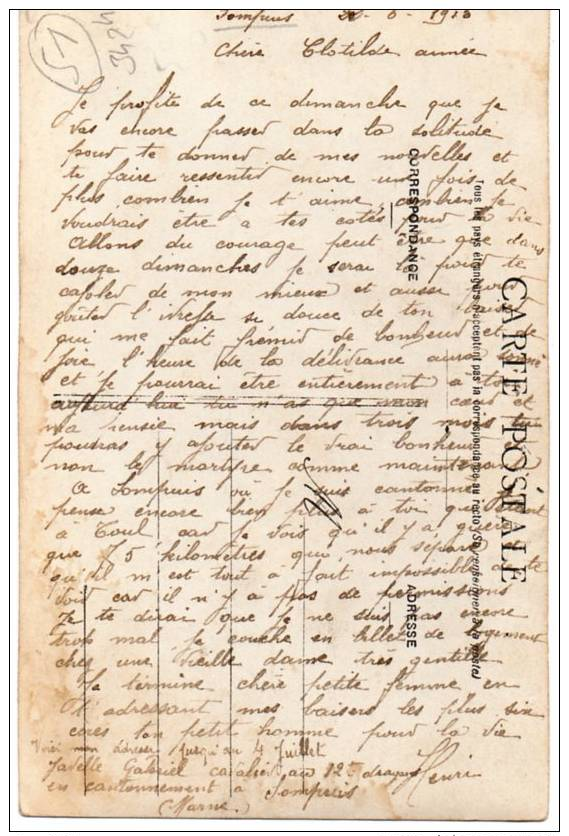 51
3424
Sompuis 22-6-1913
Chère Clotilde aimée
Je profite de ce dimanche que je
vas encore passer dans la solitude
pour te donner de mes nouvelles et
te faire ressentir encore une fois de
plus combien je t'aime, combien je
voudrais être a tes cotés pour la vie
Allons du courage peut être que dans
douze dimanches je serai là pour te
cajoler de mon mieux et aussi pour
gouter l'ivresse si douce de ton baiser
qui me fait frémir de bonheur et de
joie l'heure de la délivrance aura sonné
et je pourrai être entièrement a toi
aujourd'hui tu n'as que mon cœur et
ma pensée mais dans trois mois tu
pourras y ajouter le vrai bonheur
non le martyre comme maintenant
A Sompuis où je suis cantonné je
pense encore bien plus à toi que
à Toul car je vois qu'il y a guère
que 75 kilomètres qui nous sépare
qu'il m'est tout a fait impossible de te
voir car il n'y a pas de permissions
Je te dirai que je ne suis pas encore
trop mal je couche en billet de logement
chez une vieille dame très gentille
Je termine chère petite femme en
t'adressant mes baisers les plus sin
cères ton petit homme pour la vie
Voici mon adresse jusqu'au 4 Juillet
Gabriel cavalier au 12e dragons Henri
en cantonnement a Sompuis
(Marne.)
CARTE POSTALE
Tous les pays étrangers n'acceptent pas la correspondance au recto (Se renseigner à la poste)
CORRESPONDANCE
ADRESSE